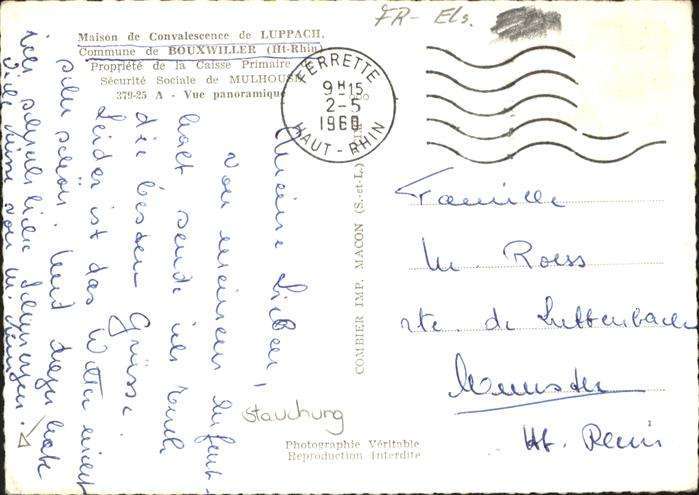 FR- Els.
Maison de Convalescence de LUPPACH,
Commune de BOUXWILLER (Ht-Rhin)
Propriété de la Caisse Primaire
Sécurité Sociale de MULHOUSE
379-25 A - Vue panoramique
FERRETTE
9H15
2-5
1960
HAUT-RHIN
Meine Lieben,
von meinem
sende ich Euch
die besten Grüsse.
Leider ist das Wetter nicht
sehr schön. Und
ich
von
COMBIER IMP. MACON (S.-et-L.)
Famille
M. Roess
rte. de Luttenbach
Munster
Ht. Rhin
Stauchung
Photographie Véritable
Reproduction Interdite